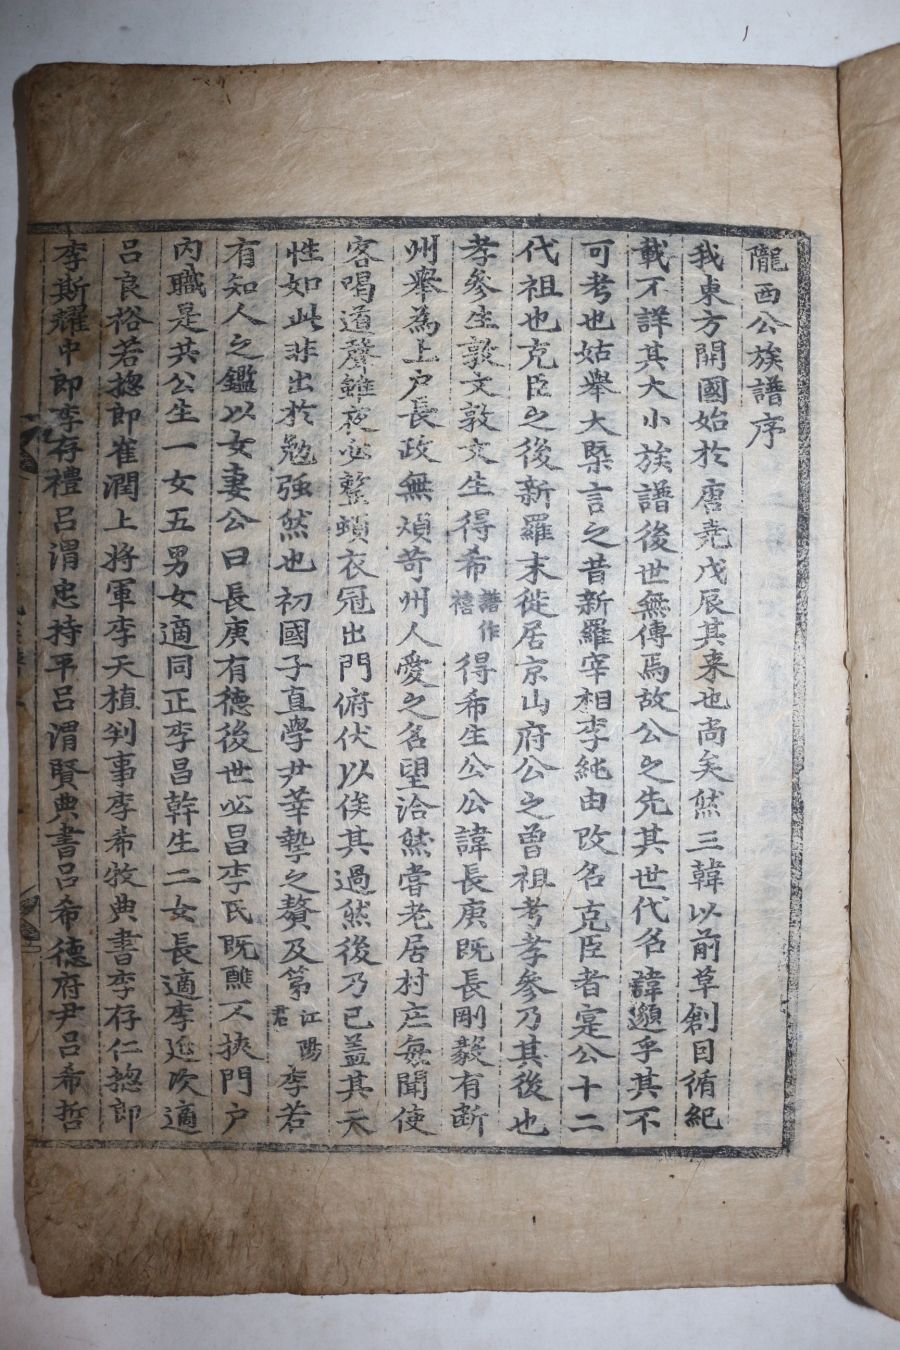 隴西公族譜序
我東方開國始於唐堯戊辰其来也尚矣然三韓以前草創因循紀
載不詳其大小族譜後世無傳焉故公之先其世代名諱邈乎其不
可考也姑舉大槩言之昔新羅宰相李純由改名克臣者寔公十二
代祖也克臣之後新羅末徙居京山府公之曾祖考孝參乃其後也
孝參生敦文敦文生得希譜作禧得希生公公諱長庚既長剛毅有断
州舉為上户長政無煩苛州人愛之名望洽然嘗老居村庄每聞使
客喝道聲雖夜必整頓衣冠出門俯伏以俟其過然後乃已盖其天
性如此非出於勉强然也初國子直學尹莘摯之贅及第江陽君李若
有知人之鑑以女妻公曰長庚有德後世必昌李氏既醮不挾門户
内職是共公生一女五男女適同正李昌幹生二女長適李延次適
呂良裕若揔郎崔潤上將軍李天植判事李希牧典書李存仁揔郎
李斯耀中郎李存禮呂渭忠持平呂渭賢典書呂希德府尹呂希哲